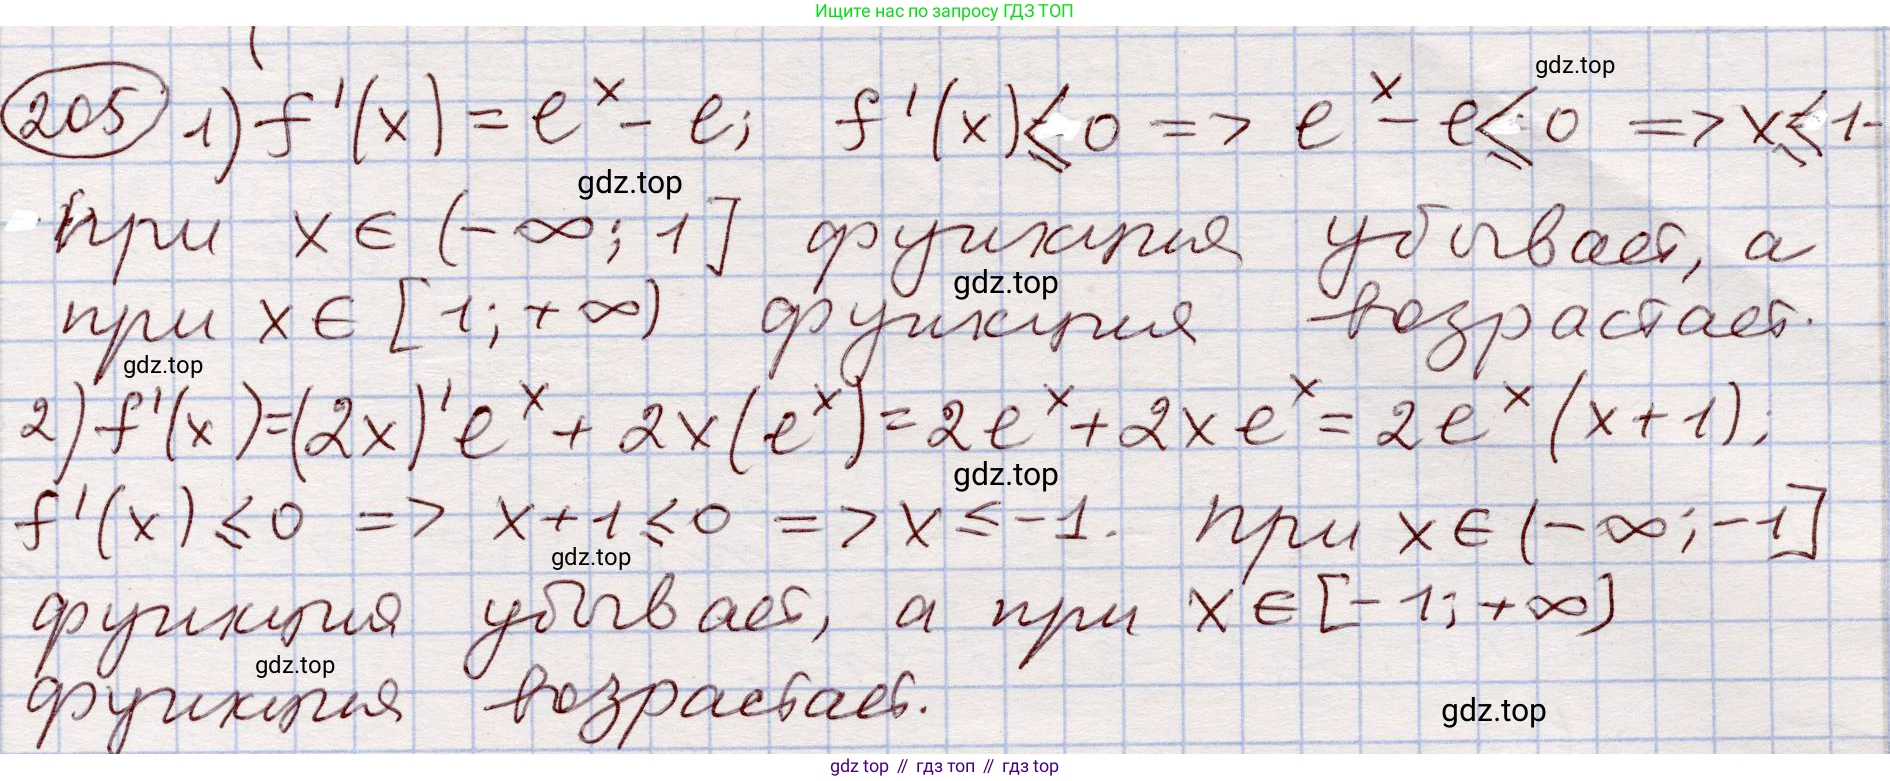 Ищите нас по запросу ГДЗ ТОП
gdz.top
205 1) f'(x) = e^x - e; f'(x) ≤ 0 => e^x - e ≤ 0 => x ≤ 1-
gdz.top
при x ∈ (-∞; 1] функция убывает, а
gdz.top
при x ∈ [1; +∞) функция возрастает.
gdz.top
2) f'(x) = (2x)'e^x + 2x(e^x) = 2e^x + 2xe^x = 2e^x (x+1);
gdz.top
f'(x) ≤ 0 => x+1 ≤ 0 => x ≤ -1. При x ∈ (-∞; -1]
gdz.top
функция убывает, а при x ∈ [-1; +∞)
gdz.top
функция возрастает.
gdz.top
gdz top // гдз топ // гдз top